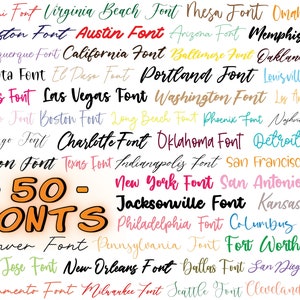 Font Virginia Beach Font Mesa Font Omaha
Font Austin Font Arizona Font Memphis
Font California Font Baltimore Font Oakland
Font El Paso Font Portland Font Louisville
Font Las Vegas Font Washington Font Los
Font Boston Font Long Beach Font Phoenix Font
Font Charlotte Font Oklahoma Font Detroit
Font Texas Font Indianapolis Font San Francisco
- 50 -
FONTS
New York Font San Antonio
Jacksonville Font Kansas
Philadelphia Font Columbus
Font Pennsylvania Font Fort Worth
Jose Font New Orleans Font Dallas Font San Diego
Font Milwaukee Font Seattle Font Cleveland